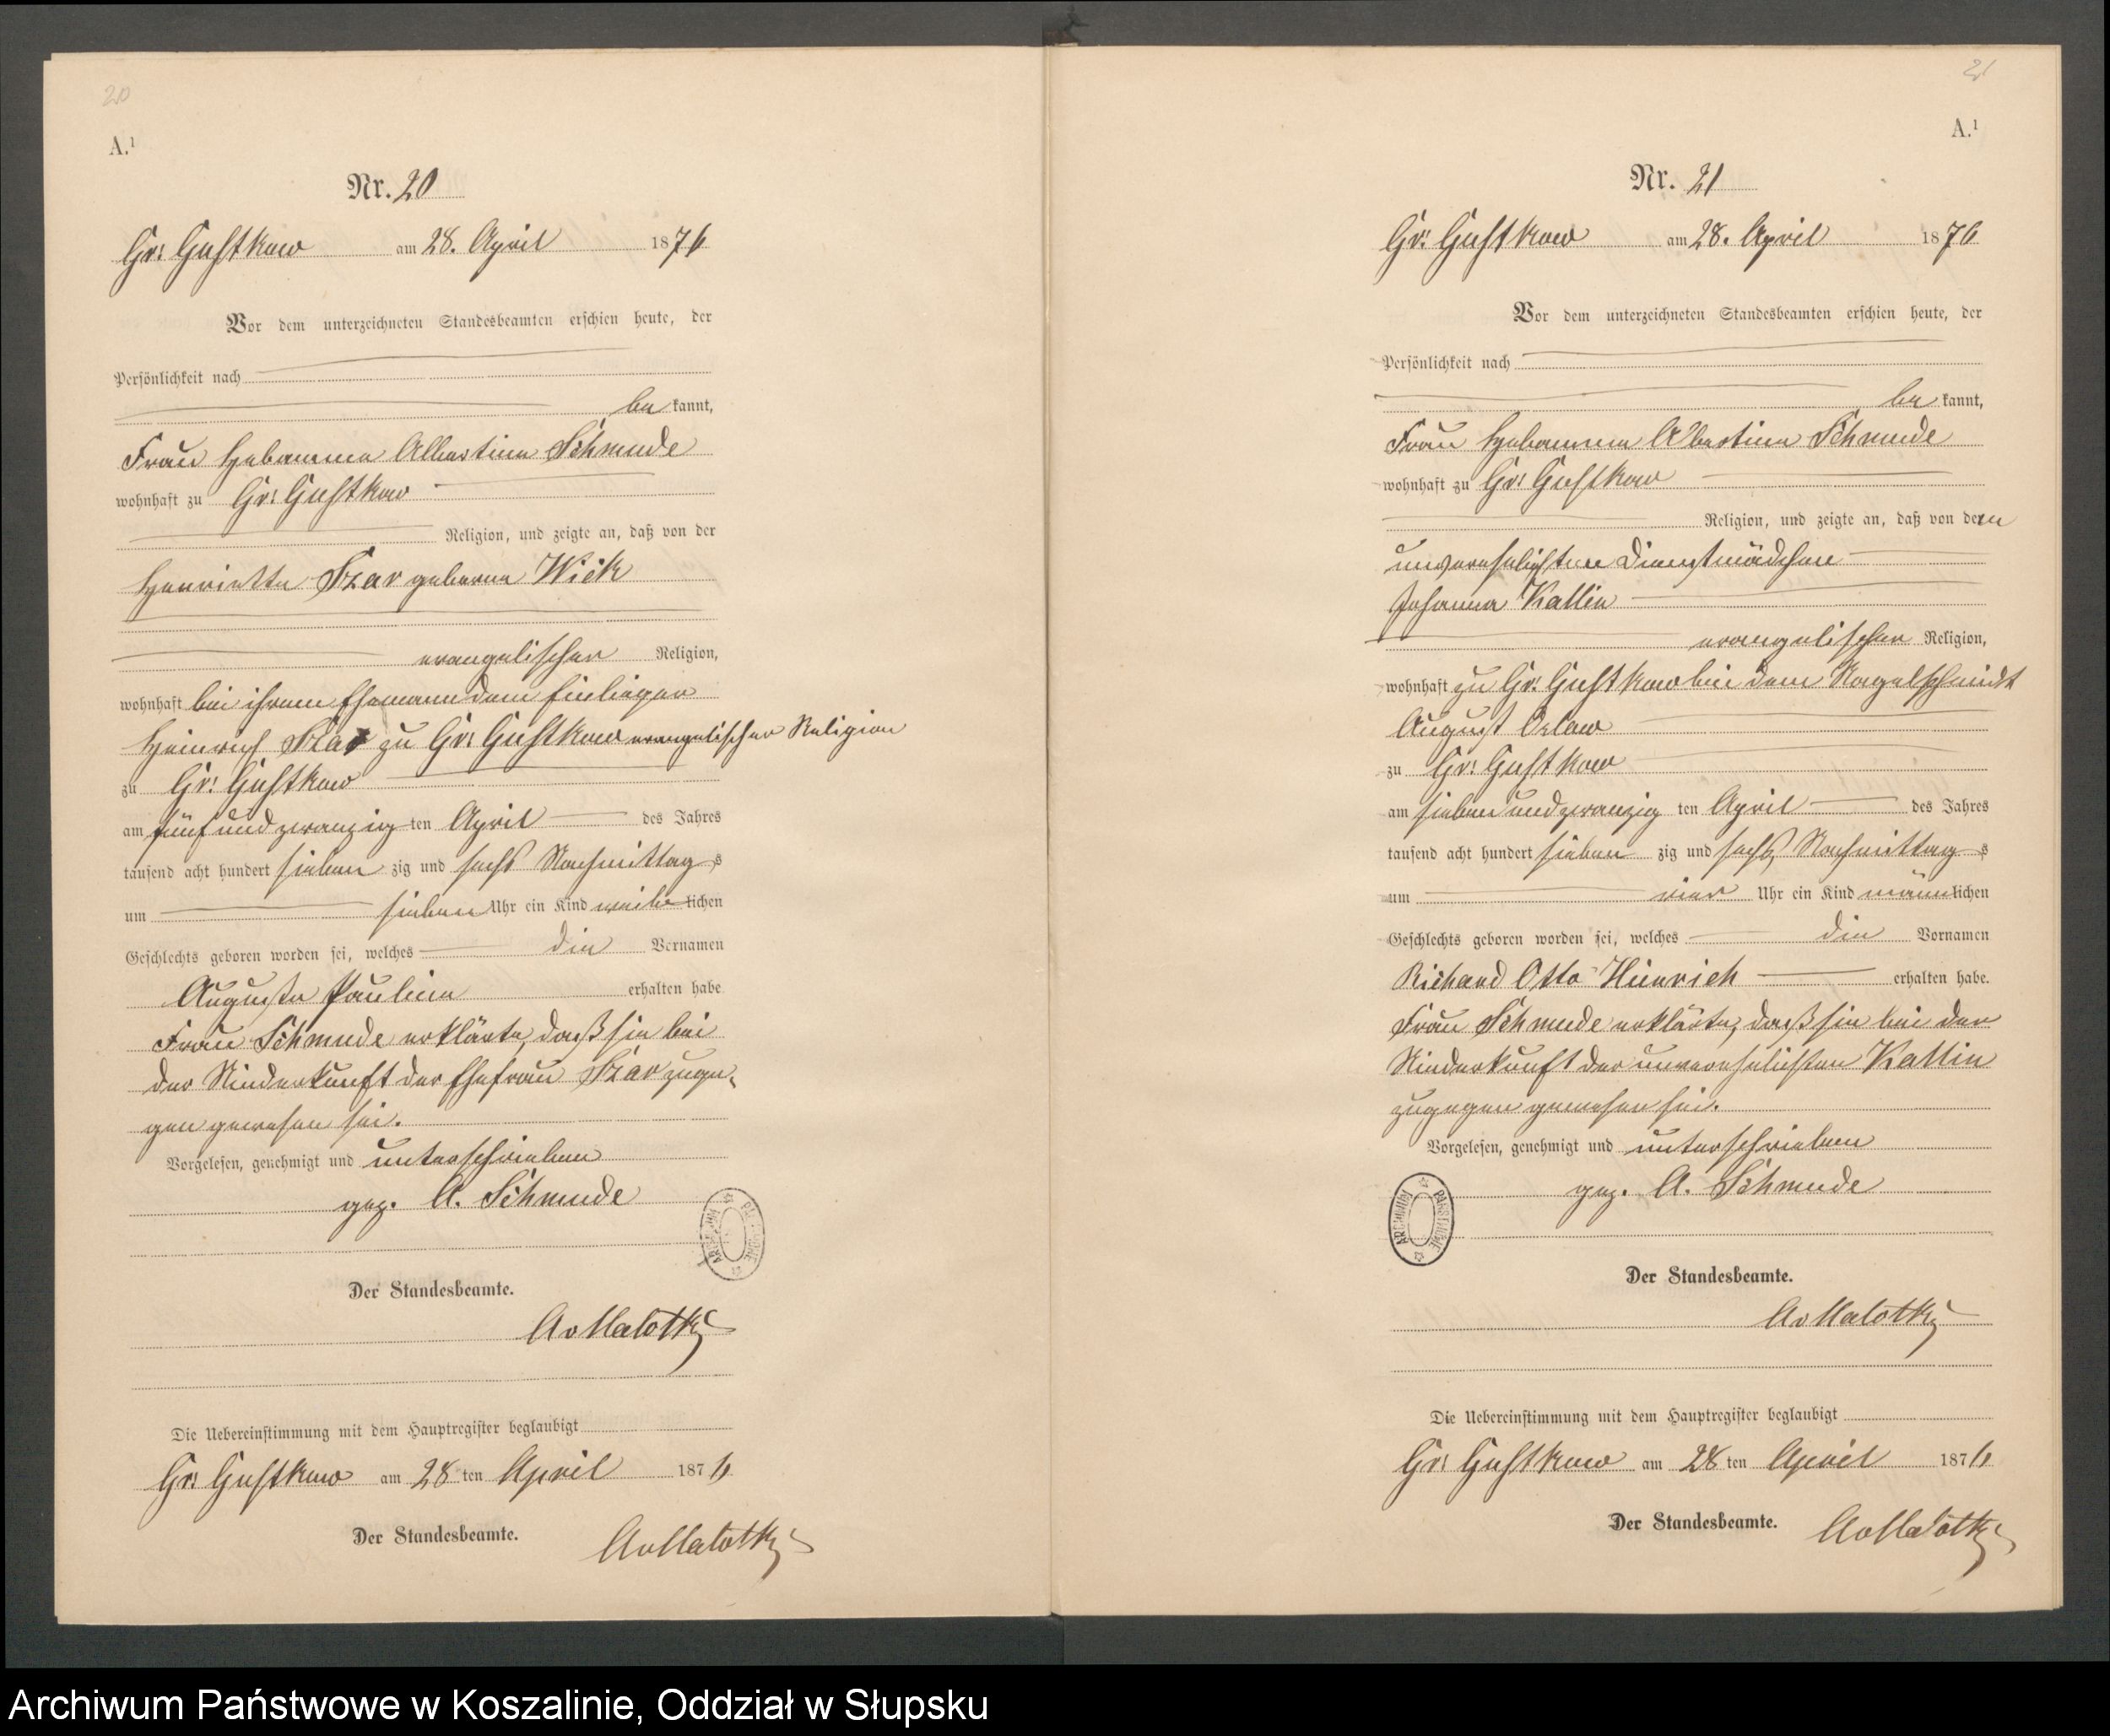 20
A.¹
Nr. 20
Gr: Gustkow am 28. April 1876
Vor dem unterzeichneten Standesbeamten erschien heute, der
Persönlichkeit nach
be kannt,
Frau Hebamme Albertine Schmude
wohnhaft zu Gr: Gustkow
Religion, und zeigte an, daß von der
Henriette Szar geborne Wick
evangelischer Religion,
wohnhaft bei ihrem Ehemann dem Einlieger
Heinrich Szar zu Gr: Gustkow evangelischer Religion
zu Gr: Gustkow
am fünf und zwanzig ten April des Jahres
tausend acht hundert sieben zig und sechs Nachmittag s
um sieben Uhr ein Kind weib lichen
Geschlechts geboren worden sei, welches die Vornamen
Auguste Pauline erhalten habe
Frau Schmude erklärte, daß sie bei
der Niederkunft der Ehefrau Szar zuge-
gen gewesen sei.
Vorgelesen, genehmigt und unterschrieben
gez. A. Schmude
ARCHIWUM PAŃSTWOWE
Der Standesbeamte.
AvMalottky
Die Uebereinstimmung mit dem Hauptregister beglaubigt
Gr: Gustkow am 28 ten April 1876
Der Standesbeamte. AvMalottky
21
A.¹
Nr. 21
Gr: Gustkow am 28. April 1876
Vor dem unterzeichneten Standesbeamten erschien heute, der
Persönlichkeit nach
be kannt,
Frau Hebamme Albertine Schmude
wohnhaft zu Gr: Gustkow
Religion, und zeigte an, daß von dem
unverehelichten Dienstmädchen
Johanna Kattin
evangelischer Religion,
wohnhaft zu Gr: Gustkow bei dem Nagelschmidt
August
zu Gr: Gustkow
am sieben und zwanzig ten April des Jahres
tausend acht hundert sieben zig und sechs Nachmittag s
um vier Uhr ein Kind männlichen
Geschlechts geboren worden sei, welches die Vornamen
Richard Otto Heinrich erhalten habe.
Frau Schmude erklärte, daß sie bei der
Niederkunft der unverehelichten Kattin
zugegen gewesen sei.
Vorgelesen, genehmigt und unterschrieben
gez. A. Schmude
ARCHIWUM PAŃSTWOWE
Der Standesbeamte.
AvMalottky
Die Uebereinstimmung mit dem Hauptregister beglaubigt
Gr: Gustkow am 28 ten April 1876
Der Standesbeamte. AvMalottky
Archiwum Państwowe w Koszalinie, Oddział w Słupsku